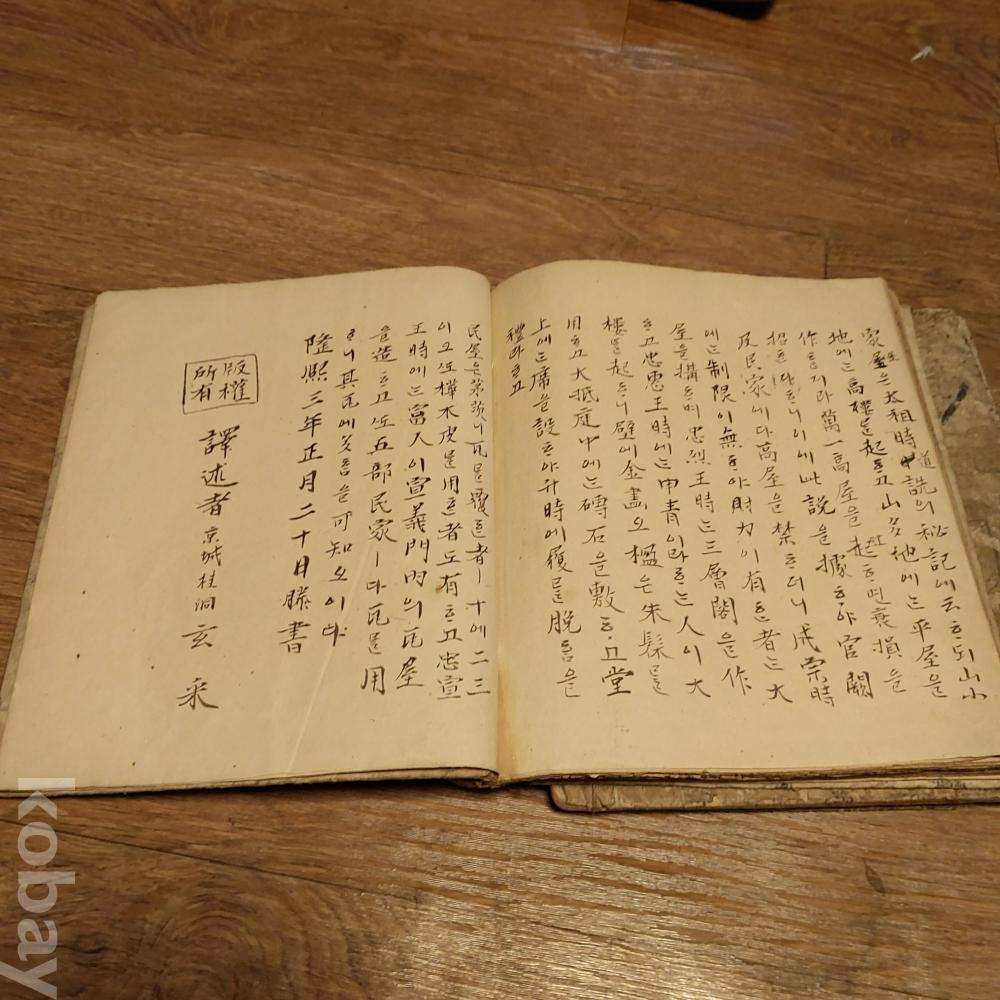 家屋은太祖時道詵의秘記에云ᄒᆞ되山小
地에ᄂᆞᆫ高樓를起ᄒᆞ고山多地에ᄂᆞᆫ平屋을
作ᄒᆞ지라萬一高屋을起ᄒᆞ면衰損을
招ᄒᆞᆫ다ᄒᆞ니이에此說을據ᄒᆞ야官闕
及民家에다高屋을禁ᄒᆞ더니成宗時
에ᄂᆞᆫ制限이無ᄒᆞ야財力이有ᄒᆞᆫ者ᄂᆞᆫ大
屋을構ᄒᆞ며忠烈王時ᄂᆞᆫ三層閣을作
ᄒᆞ고忠惠王時에ᄂᆞᆫ申青이라ᄒᆞᄂᆞᆫ人이大
樓를起ᄒᆞ니壁에金畫오楹은朱髹를
用ᄒᆞ고大抵庭中에ᄂᆞᆫ磚石을敷ᄒᆞ고堂
上에ᄂᆞᆫ席을設ᄒᆞ야升時에履를脫ᄒᆞᆷ을
禮라ᄒᆞ고
民屋은茅茨니瓦로覆ᄒᆞᆫ者ㅣ十에二三
이오ᄯᅩ樺木皮를用ᄒᆞᆫ者도有ᄒᆞ고忠宣
王時에ᄂᆞᆫ富人이宣義門內의瓦屋
을造ᄒᆞ고ᄯᅩ五部民家ㅣ다瓦를用
ᄒᆞ니其瓦에多ᄒᆞᆷ을可知오이다
隆熙三年正月二十日謄書
版權
所有
譯述者 京城桂洞 玄采
kobay